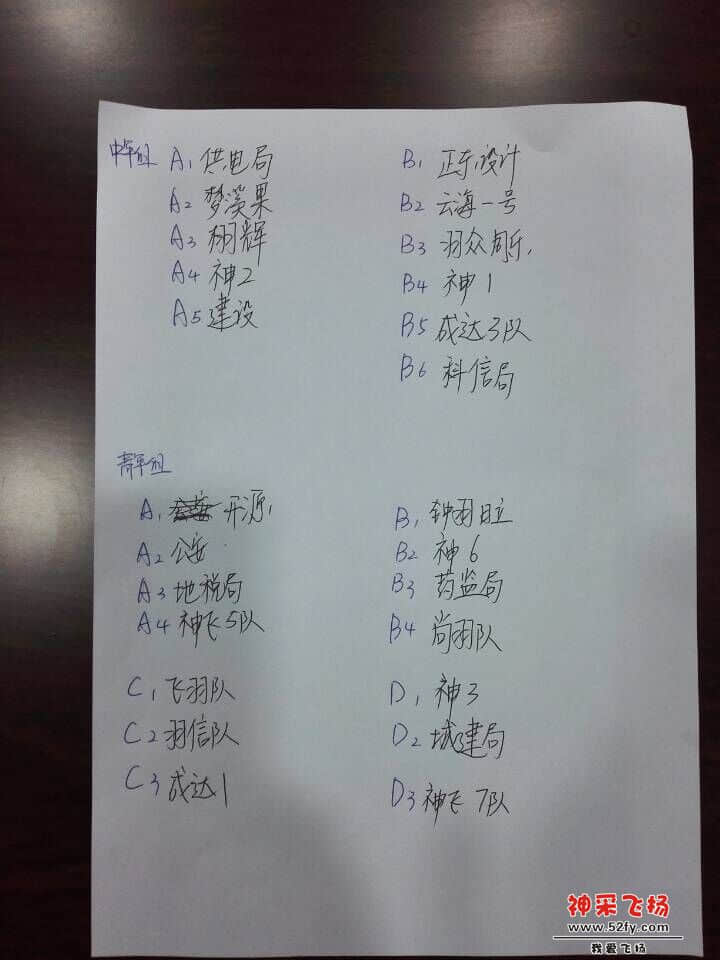 中年组
A1 供电局
A2 梦溪果
A3 栩辉
A4 神2
A5 建设
B1 正东设计
B2 云海一号
B3 羽众同乐
B4 神1
B5 成达3队
B6 科信局
青年组
A1 开源
A2 公安
A3 地税局
A4 神飞5队
B1 钟羽日立
B2 神6
B3 药监局
B4 尚羽队
C1 飞羽队
C2 羽信队
C3 成达1
D1 神3
D2 城建局
D3 神飞7队
神采飞扬
www.52fy.com
我爱飞扬